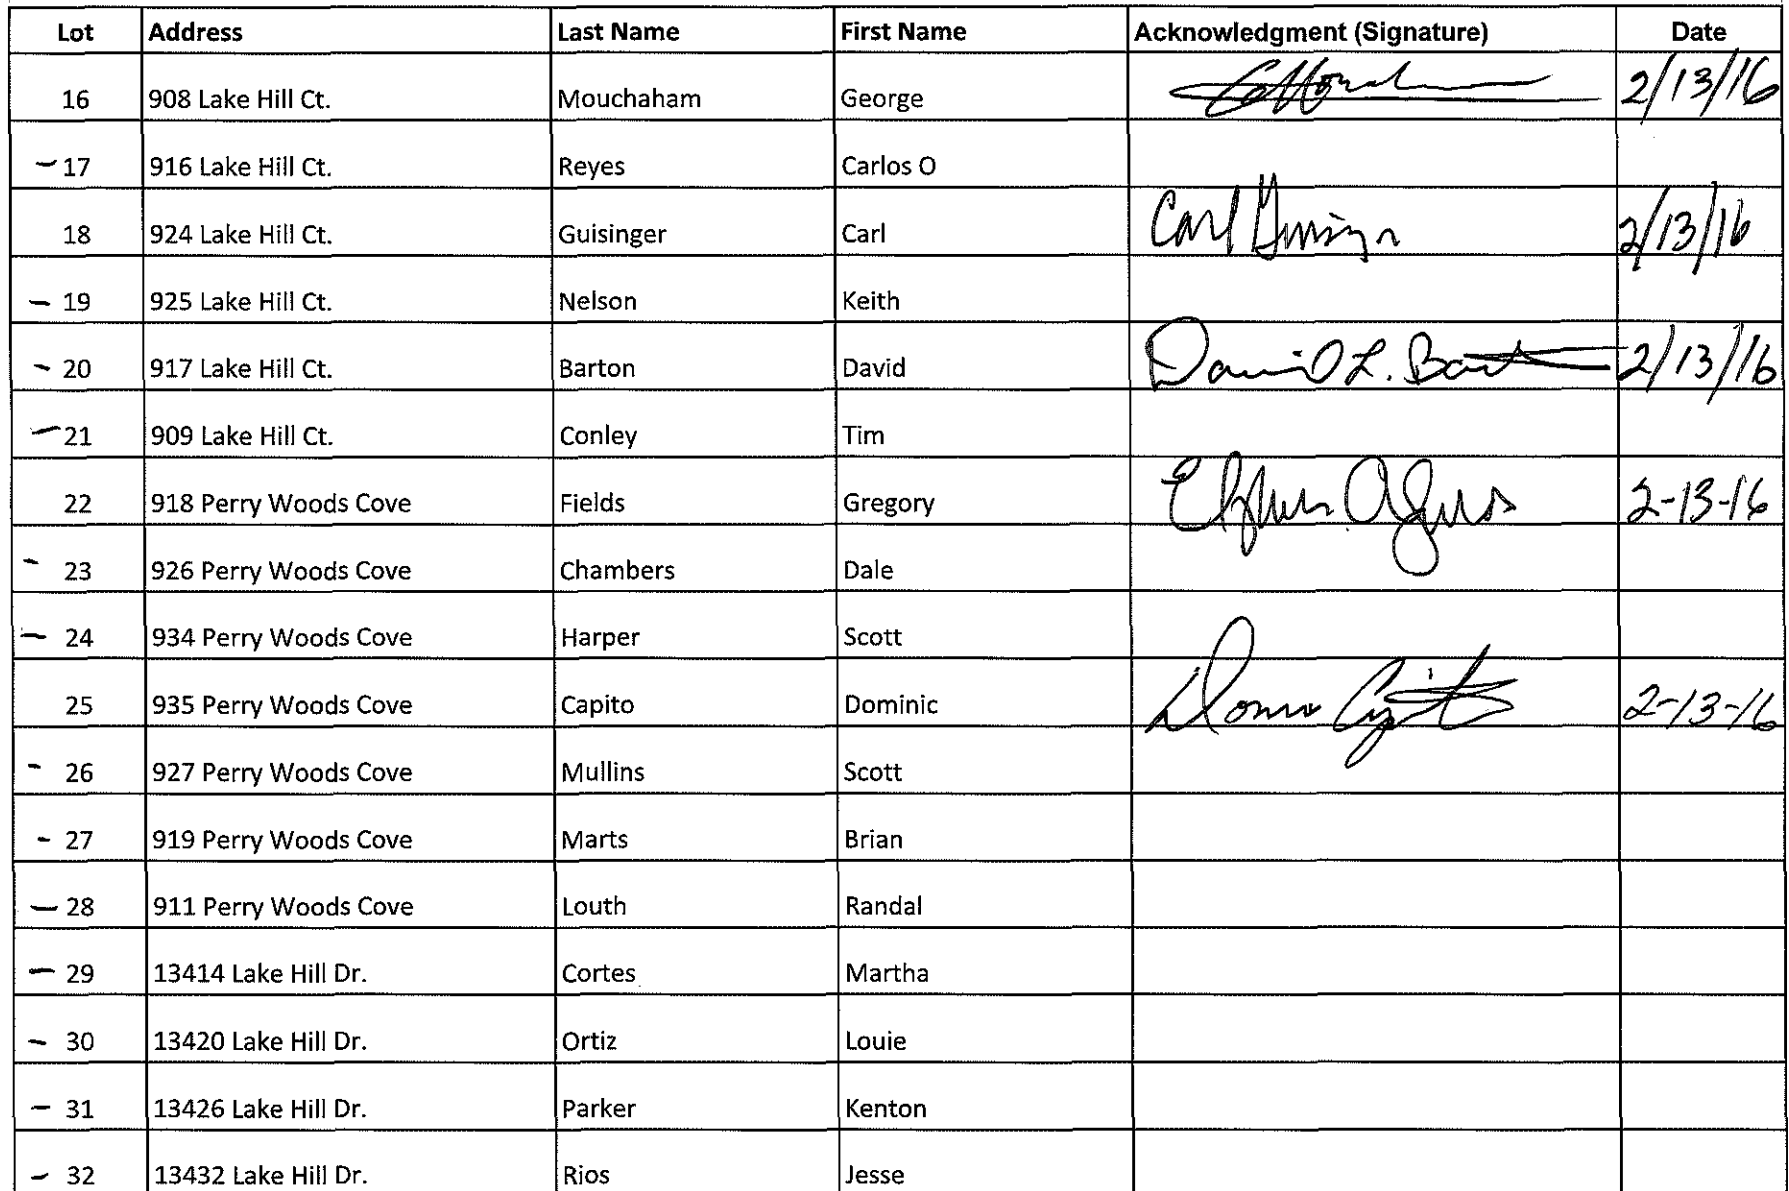 Lot Address Last Name First Name Acknowledgment (Signature) Date
16 908 Lake Hill Ct. Mouchaham George 2/13/16
- 17 916 Lake Hill Ct. Reyes Carlos O
18 924 Lake Hill Ct. Guisinger Carl Carl 2/13/16
- 19 925 Lake Hill Ct. Nelson Keith
- 20 917 Lake Hill Ct. Barton David David L. Barton 2/13/16
- 21 909 Lake Hill Ct. Conley Tim
22 918 Perry Woods Cove Fields Gregory 2-13-16
- 23 926 Perry Woods Cove Chambers Dale
- 24 934 Perry Woods Cove Harper Scott
25 935 Perry Woods Cove Capito Dominic 2-13-16
- 26 927 Perry Woods Cove Mullins Scott
- 27 919 Perry Woods Cove Marts Brian
- 28 911 Perry Woods Cove Louth Randal
- 29 13414 Lake Hill Dr. Cortes Martha
- 30 13420 Lake Hill Dr. Ortiz Louie
- 31 13426 Lake Hill Dr. Parker Kenton
- 32 13432 Lake Hill Dr. Rios Jesse